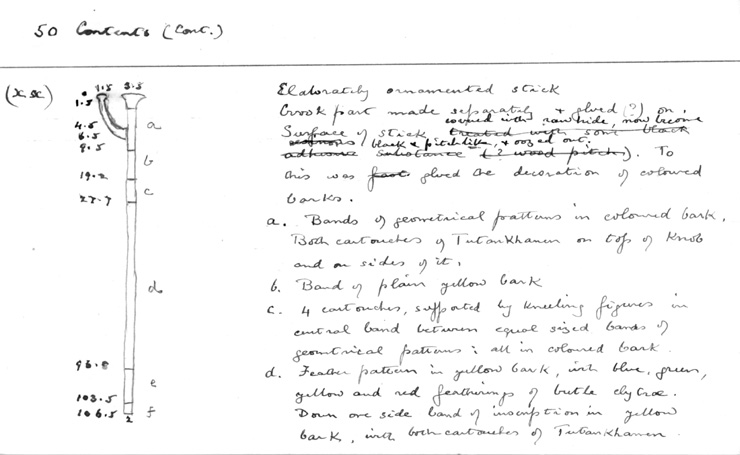 50 Contents (Cont.)
(xx)
1.5 3.5
1.5
4.5
6.5
9.5
19.2
27.7
93.0
103.5
106.5
2
a
b
c
d
e
f
Elaborately ornamented stick
Crook part made separately & glued (?) on.
covered with rawhide, now become
Surface of stick treated with some black
black & pitchlike, & oozed out.
adhesive substance (? wood pitch). To
this was glued the decoration of coloured
barks.
a. Bands of geometrical patterns in coloured bark.
Both cartouches of Tutankhamen on top of knob
and on sides of it.
b. Band of plain yellow bark
c. 4 cartouches, supported by kneeling figures in
central band between equal sized bands of
geometrical patterns: all in coloured bark.
d. Feather pattern in yellow bark, with blue, green,
yellow and red featherings of beetle elytrae.
Down one side band of inscription in yellow
bark, with both cartouches of Tutankhamen.